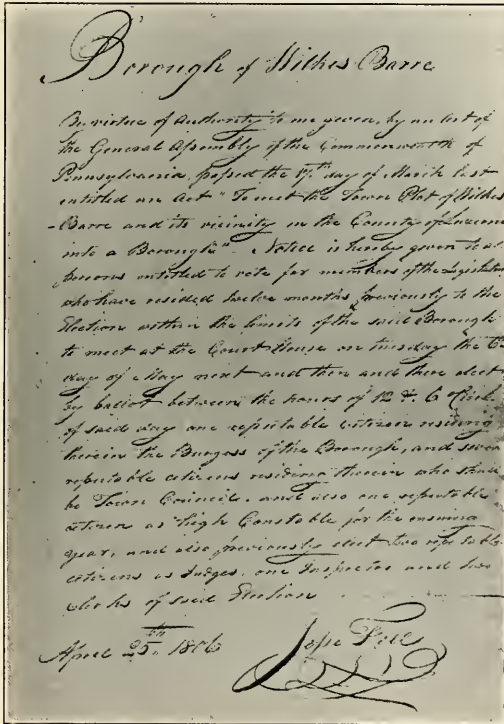 Borough of Wilkes Barre
By virtue of Authority to me given, by an act of
the General Assembly of the Commonwealth of
Pennsylvania, passed the 17th day of March last
entitled an Act "To erect the Town Plot of Wilkes
-Barre and its vicinity in the County of Luzerne
into a Borough" Notice is hereby given to all
persons entitled to vote for members of the Legislature
who have resided twelve months previously to the
Election within the limits of the said Borough
to meet at the Court House on tuesday the 6
day of May next and then and there elect
by ballot between the hours of 12 & 6 OClock
of said day one reputable citizen residing
therein the Burgess of the Borough, and seven
reputable citizens residing therein who shall
be Town Council. and also one reputable
citizen as high Constable for the ensuing
year, and also previously elect two reputable
citizens as Judges, one Inspector and two
clerks of said Election
April 25th 1806
Jesse Fell